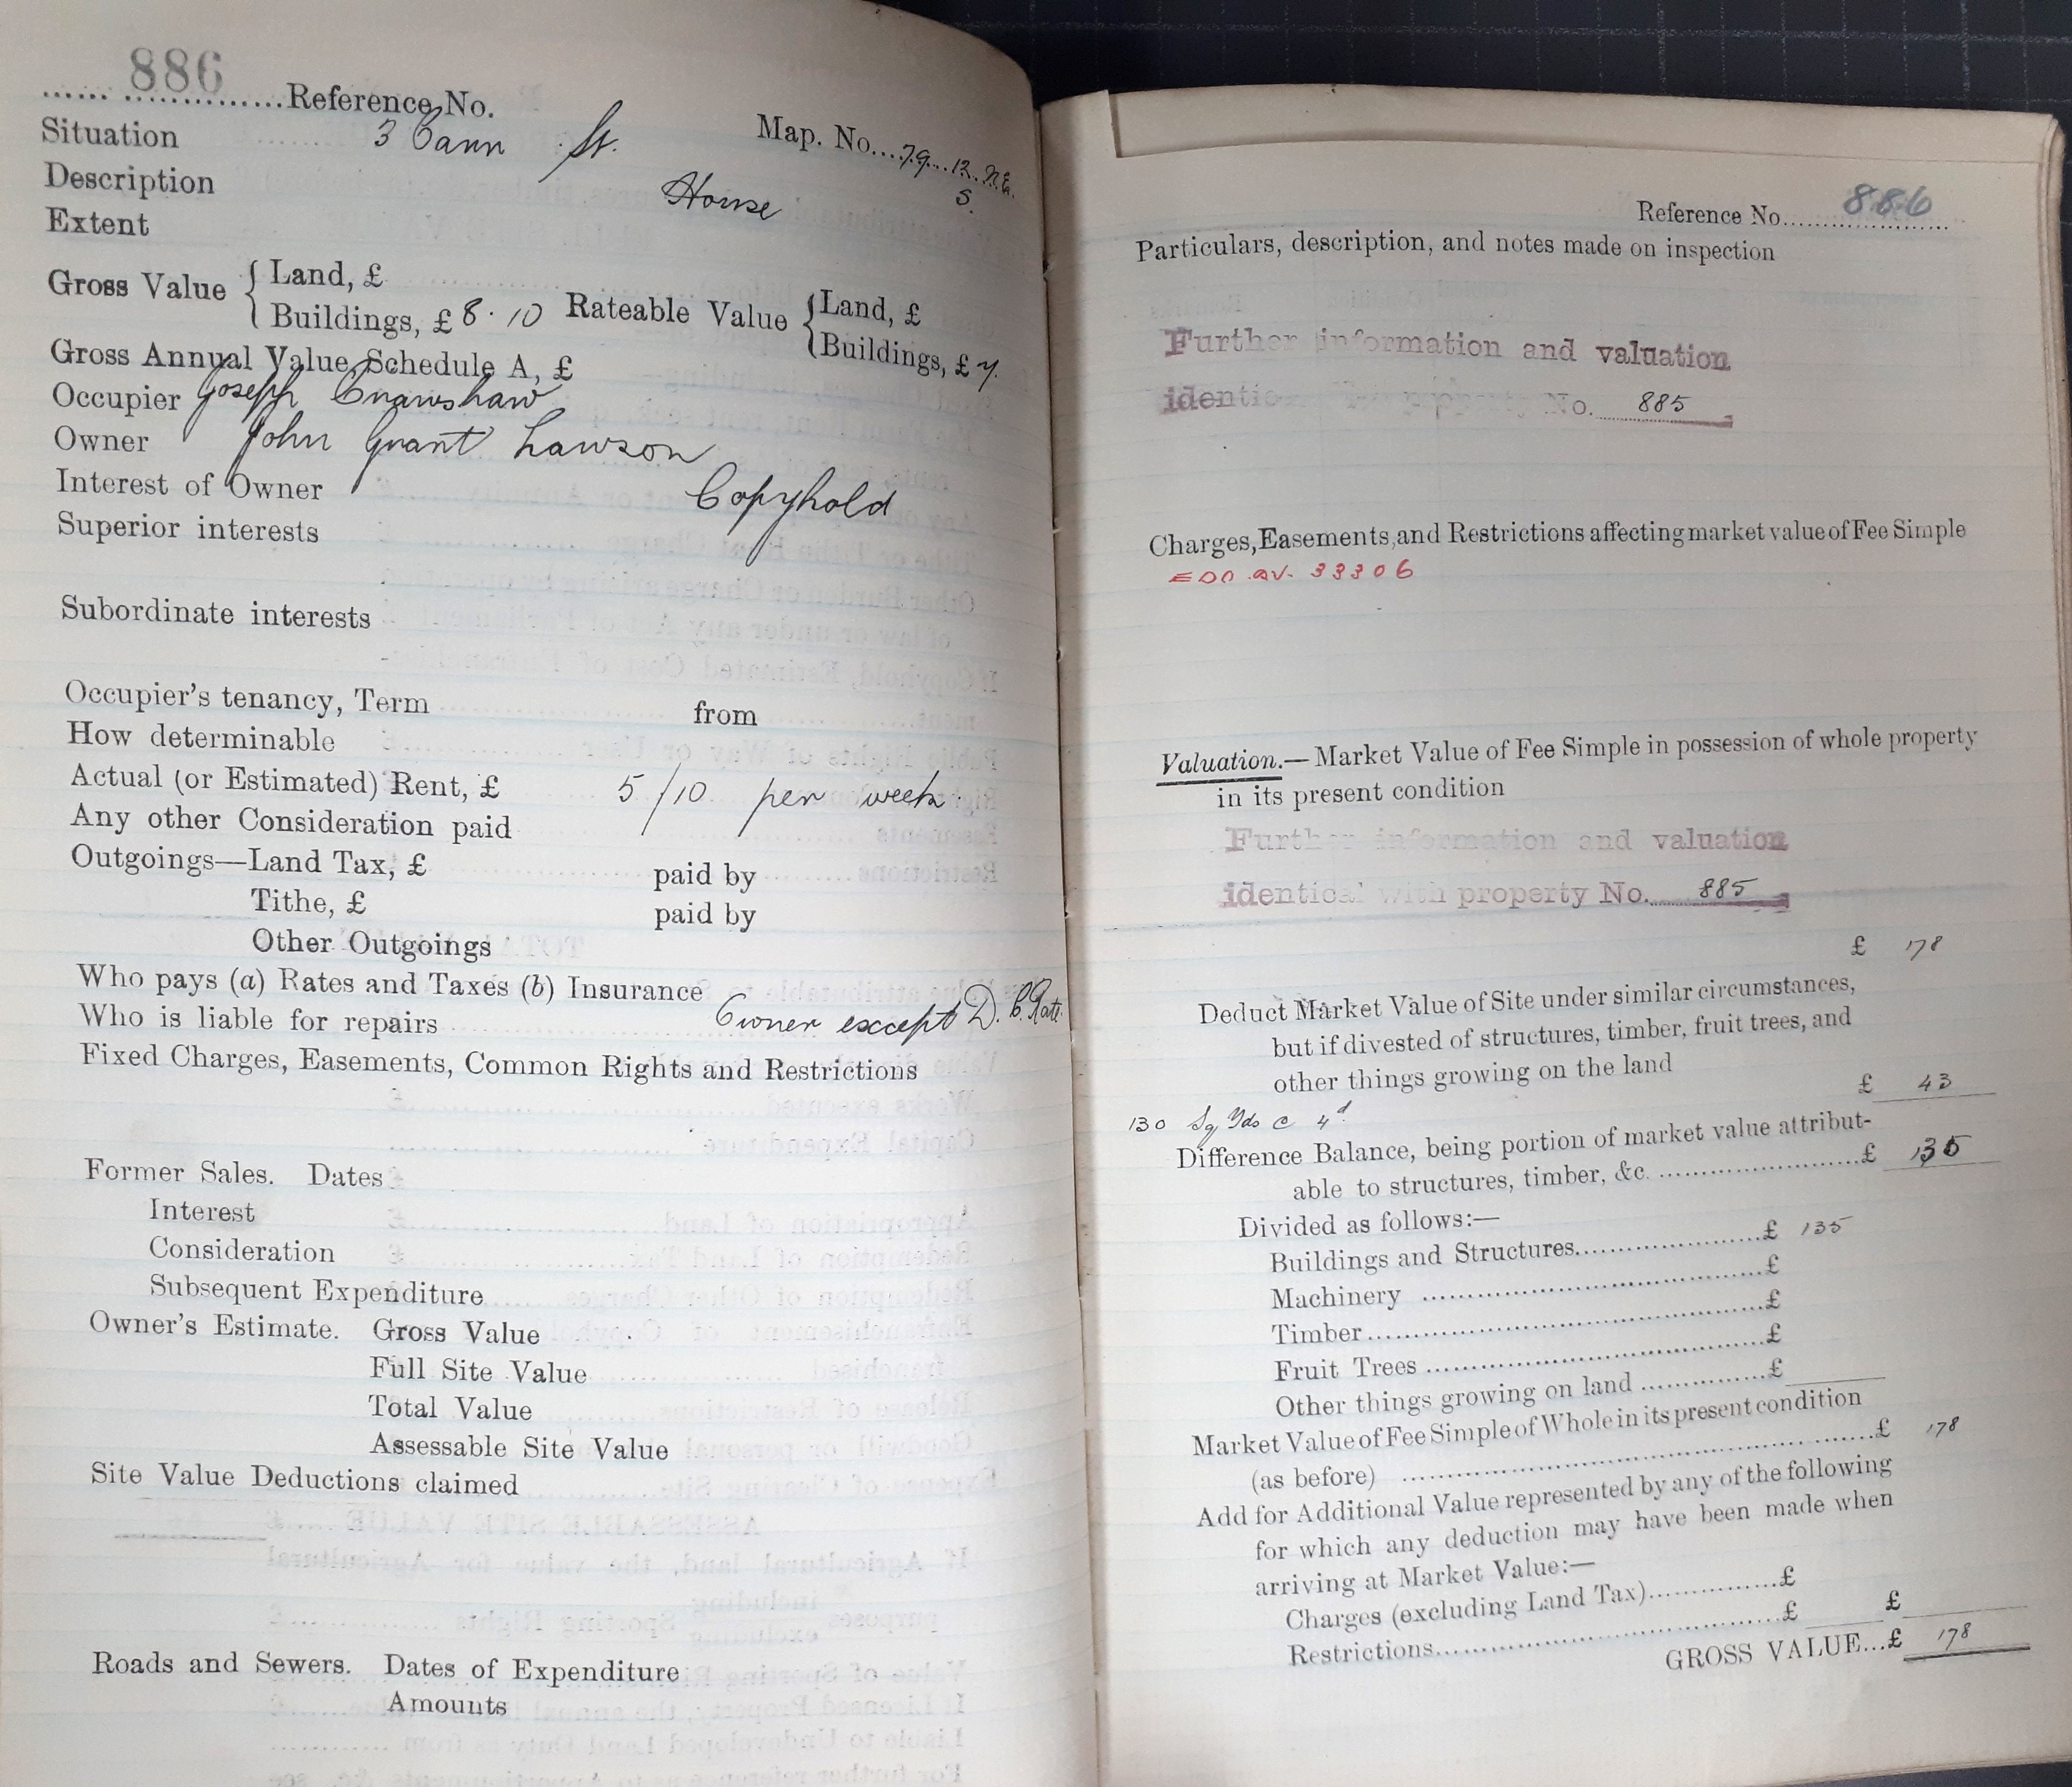 886
...... ...............Reference No.
Situation 3 Cann St. Map. No....79...12. N.E.
S.
Description House
Extent
Gross Value { Land, £
Buildings, £ 8 . 10 Rateable Value { Land, £
Buildings, £ 7.
Gross Annual Value, Schedule A, £
Occupier Joseph Crawshaw
Owner John Grant Lawson
Interest of Owner Copyhold
Superior interests
Subordinate interests
Occupier's tenancy, Term from
How determinable
Actual (or Estimated) Rent, £ 5/10 per week.
Any other Consideration paid
Outgoings—Land Tax, £ paid by
Tithe, £ paid by
Other Outgoings
Who pays (a) Rates and Taxes (b) Insurance
Who is liable for repairs Owner except D. C. Rate.
Fixed Charges, Easements, Common Rights and Restrictions
Former Sales. Dates
Interest
Consideration
Subsequent Expenditure
Owner's Estimate. Gross Value
Full Site Value
Total Value
Assessable Site Value
Site Value Deductions claimed
Roads and Sewers. Dates of Expenditure
Amounts
Reference No. 886
Particulars, description, and notes made on inspection
Further information and valuation
identical property No. 885
Charges, Easements, and Restrictions affecting market value of Fee Simple
33306
Valuation.—Market Value of Fee Simple in possession of whole property
in its present condition
Further information and valuation
identical with property No. 885
£ 178
Deduct Market Value of Site under similar circumstances,
but if divested of structures, timber, fruit trees, and
other things growing on the land
£ 43
130 Sq Yds @ 4d
Difference Balance, being portion of market value attribut-
able to structures, timber, &c. £ 135
Divided as follows:—
Buildings and Structures £ 135
Machinery £
Timber £
Fruit Trees £
Other things growing on land £
Market Value of Fee Simple of Whole in its present condition
(as before) £ 178
Add for Additional Value represented by any of the following
for which any deduction may have been made when
arriving at Market Value:—
Charges (excluding Land Tax) £
Restrictions £ £
GROSS VALUE...£ 178